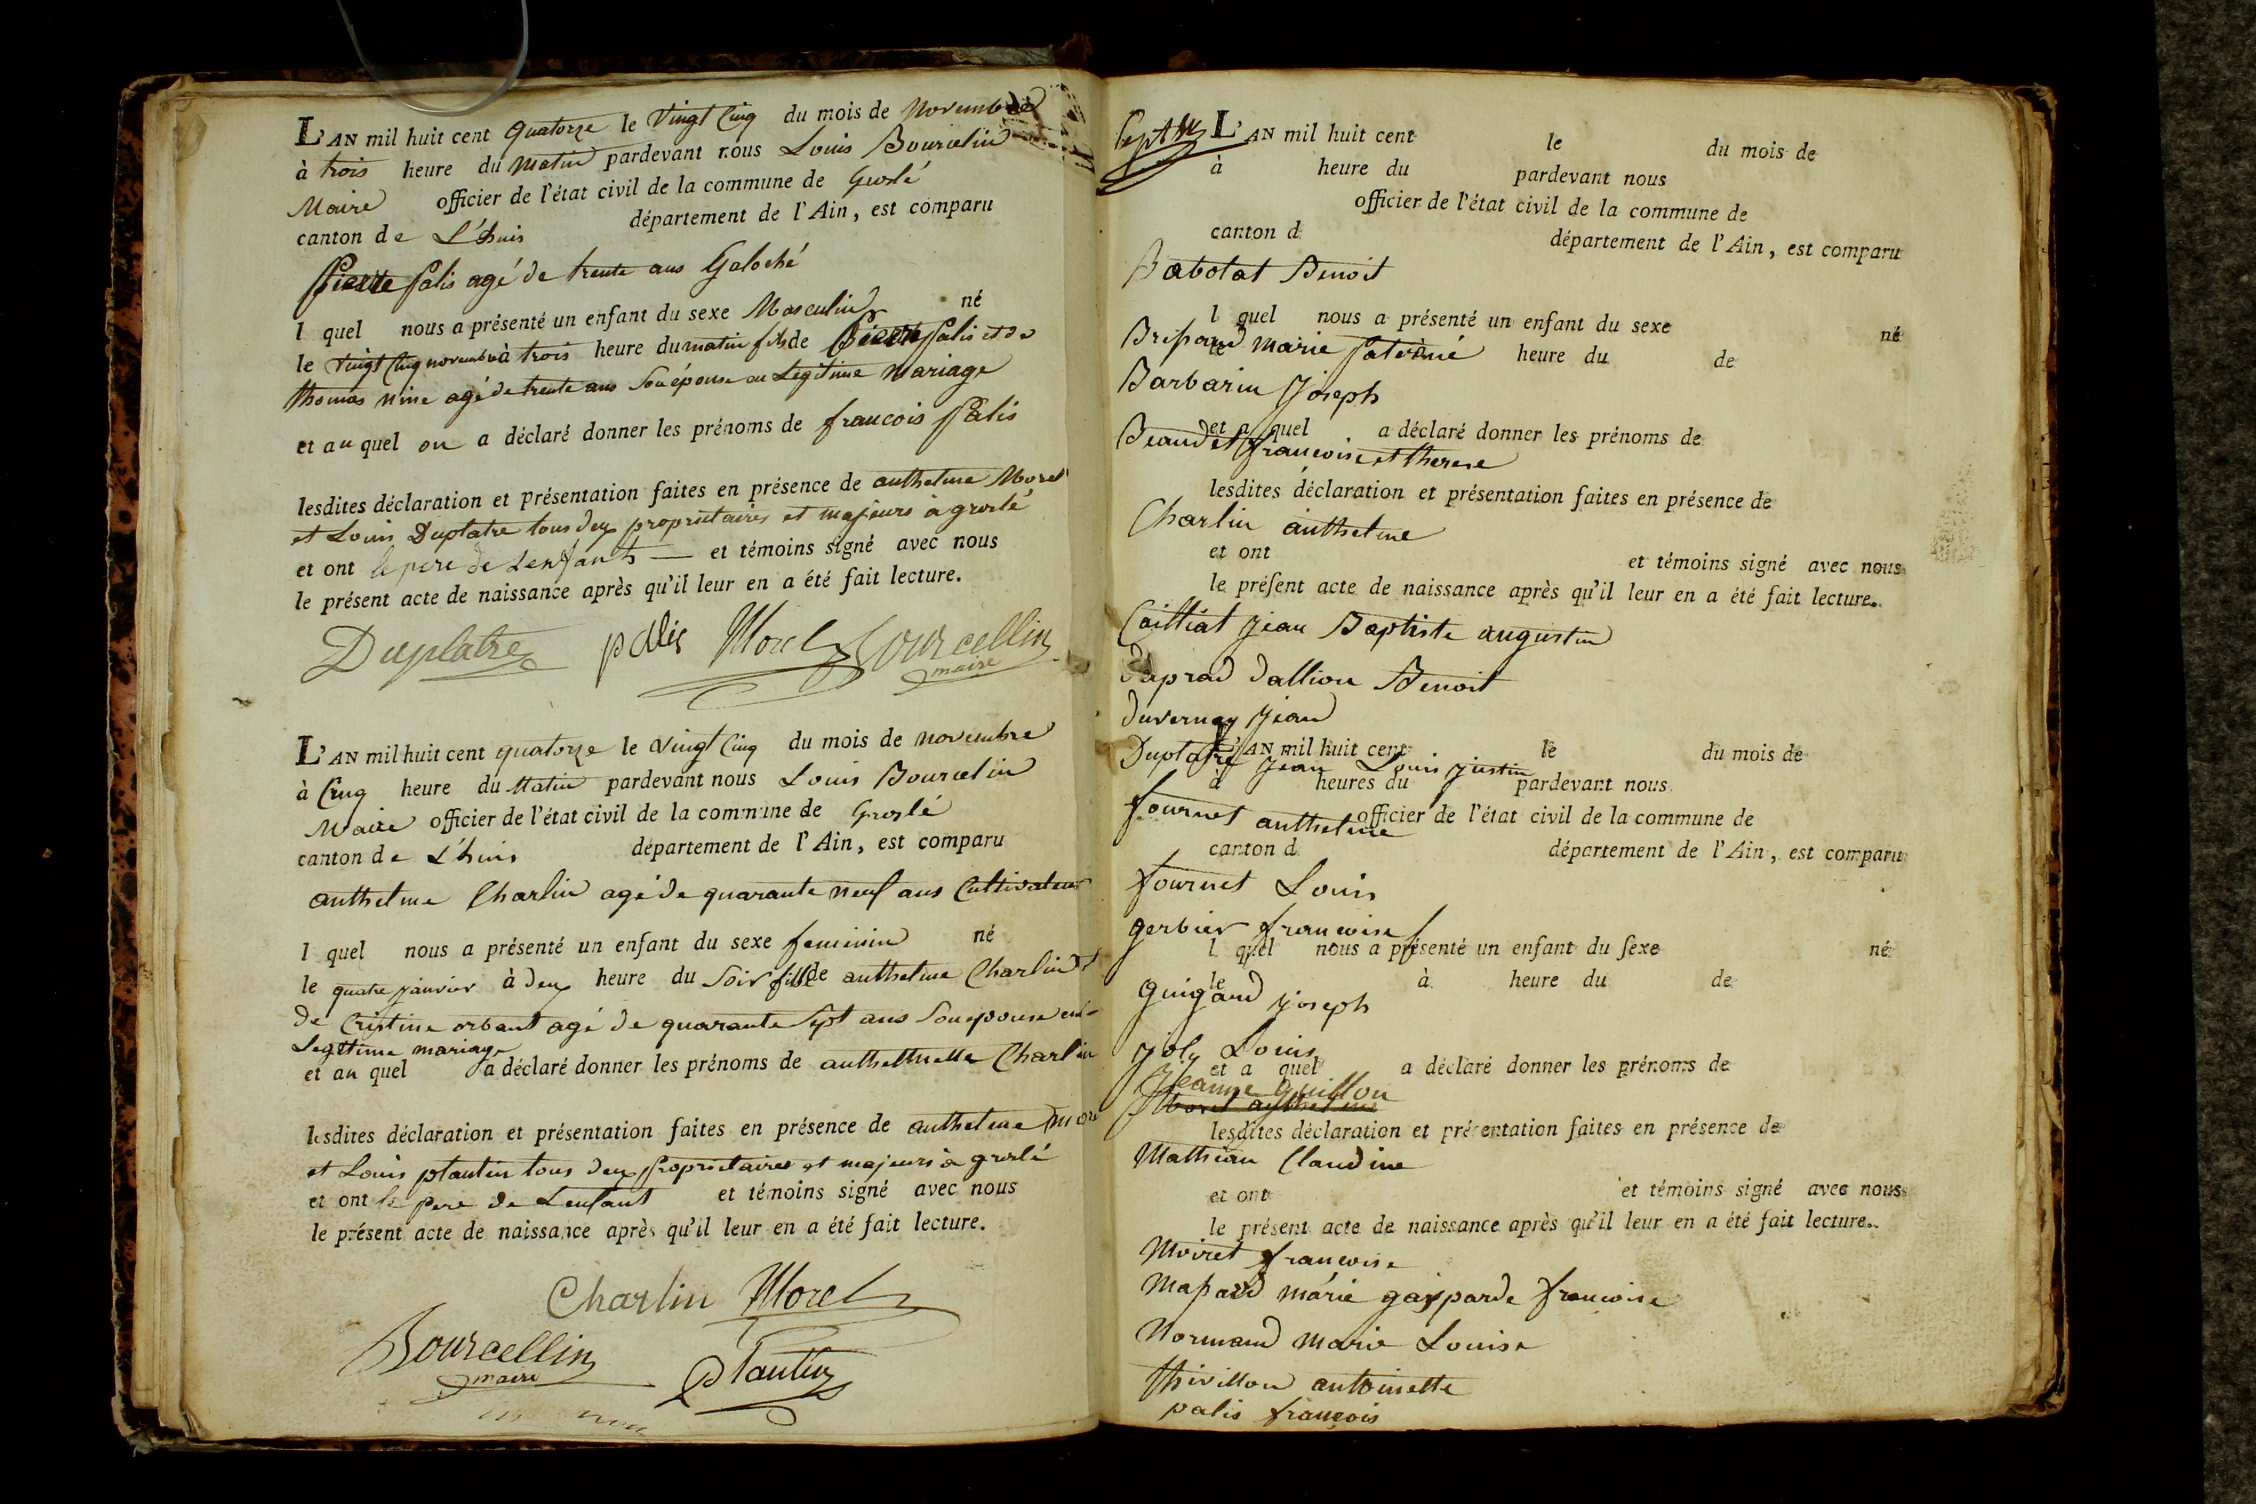 L'AN mil huit cent quatorze le vingt Cinq du mois de novembre
à trois heure du matin pardevant nous Louis Bourcelin
Maire officier de l'état civil de la commune de Groslé
canton de L'huis département de l'Ain, est comparu
Pierre palis agé de trente ans Galoché
l quel nous a présenté un enfant du sexe Masculin né
le vingt Cinq novembre à trois heure du matin fils de Pierre palis et de
thomas nine agé de trente ans Son épouse en Legitime mariage
et au quel on a déclaré donner les prénoms de francois Palis
lesdites déclaration et présentation faites en présence de anthelme Morel
et Louis Duplatre tous deux propriétaires et majeurs à groslé
et ont le pere de Lenfant et témoins signé avec nous
le présent acte de naissance après qu'il leur en a été fait lecture.
Duplatre palis Morel Bourcellin
maire
L'AN mil huit cent quatorze le vingt Cinq du mois de novembre
à Cinq heure du Matin pardevant nous Louis Bourcelin
Maire officier de l'état civil de la commune de Groslé
canton de L'huis département de l'Ain, est comparu
anthelme Charlin agé de quarante neuf ans Cultivateur
l quel nous a présenté un enfant du sexe feminin né
le quatre janvier à deux heure du Soir fille de anthelme Charlin et
de Cristine orbant agé de quarante Sept ans Son epouse en
Legitime mariage
et au quel a déclaré donner les prénoms de anthelmette Charlin
lesdites déclaration et présentation faites en présence de anthelme more
et Louis plantin tous deux propriétaires et majeurs à groslé
et ont le pere de Lenfant et témoins signé avec nous
le présent acte de naissance après qu'il leur en a été fait lecture.
Charlin Morel
Bourcellin
maire
Plantin
L'AN mil huit cent le du mois de
à heure du pardevant nous
officier de l'état civil de la commune de
canton d département de l'Ain, est comparu
Babolat Benoit
l quel nous a présenté un enfant du sexe né
Brissaud marie
le heure du de
Barbarin Joseph
et a quel a déclaré donner les prénoms de
Beaudet francoise et therese
lesdites déclaration et présentation faites en présence de
Charlin anthelme
et ont et témoins signé avec nous
le présent acte de naissance après qu'il leur en a été fait lecture.
Cailliat jean Baptiste augustin
duprad dallion Benoit
duvernay jean
L'AN mil huit cent le du mois de
Duplatre jean Louis justin
à heures du pardevant nous
fournet anthelme
officier de l'état civil de la commune de
canton d département de l'Ain, est comparu
fournet Louis
gerbier francoise
l quel nous a présenté un enfant du sexe né
le à heure du de
guigard joseph
joly Louis
et a quel a déclaré donner les prénoms de
jeanne guillon
Morel anthelme
lesdites déclaration et présentation faites en présence de
Mathieu Claudine
et ont et témoins signé avec nous
le présent acte de naissance après qu'il leur en a été fait lecture.
Moiret francoise
Massard marie gasparde francoise
Normand marie Louise
thivillon antoinette
palis françois